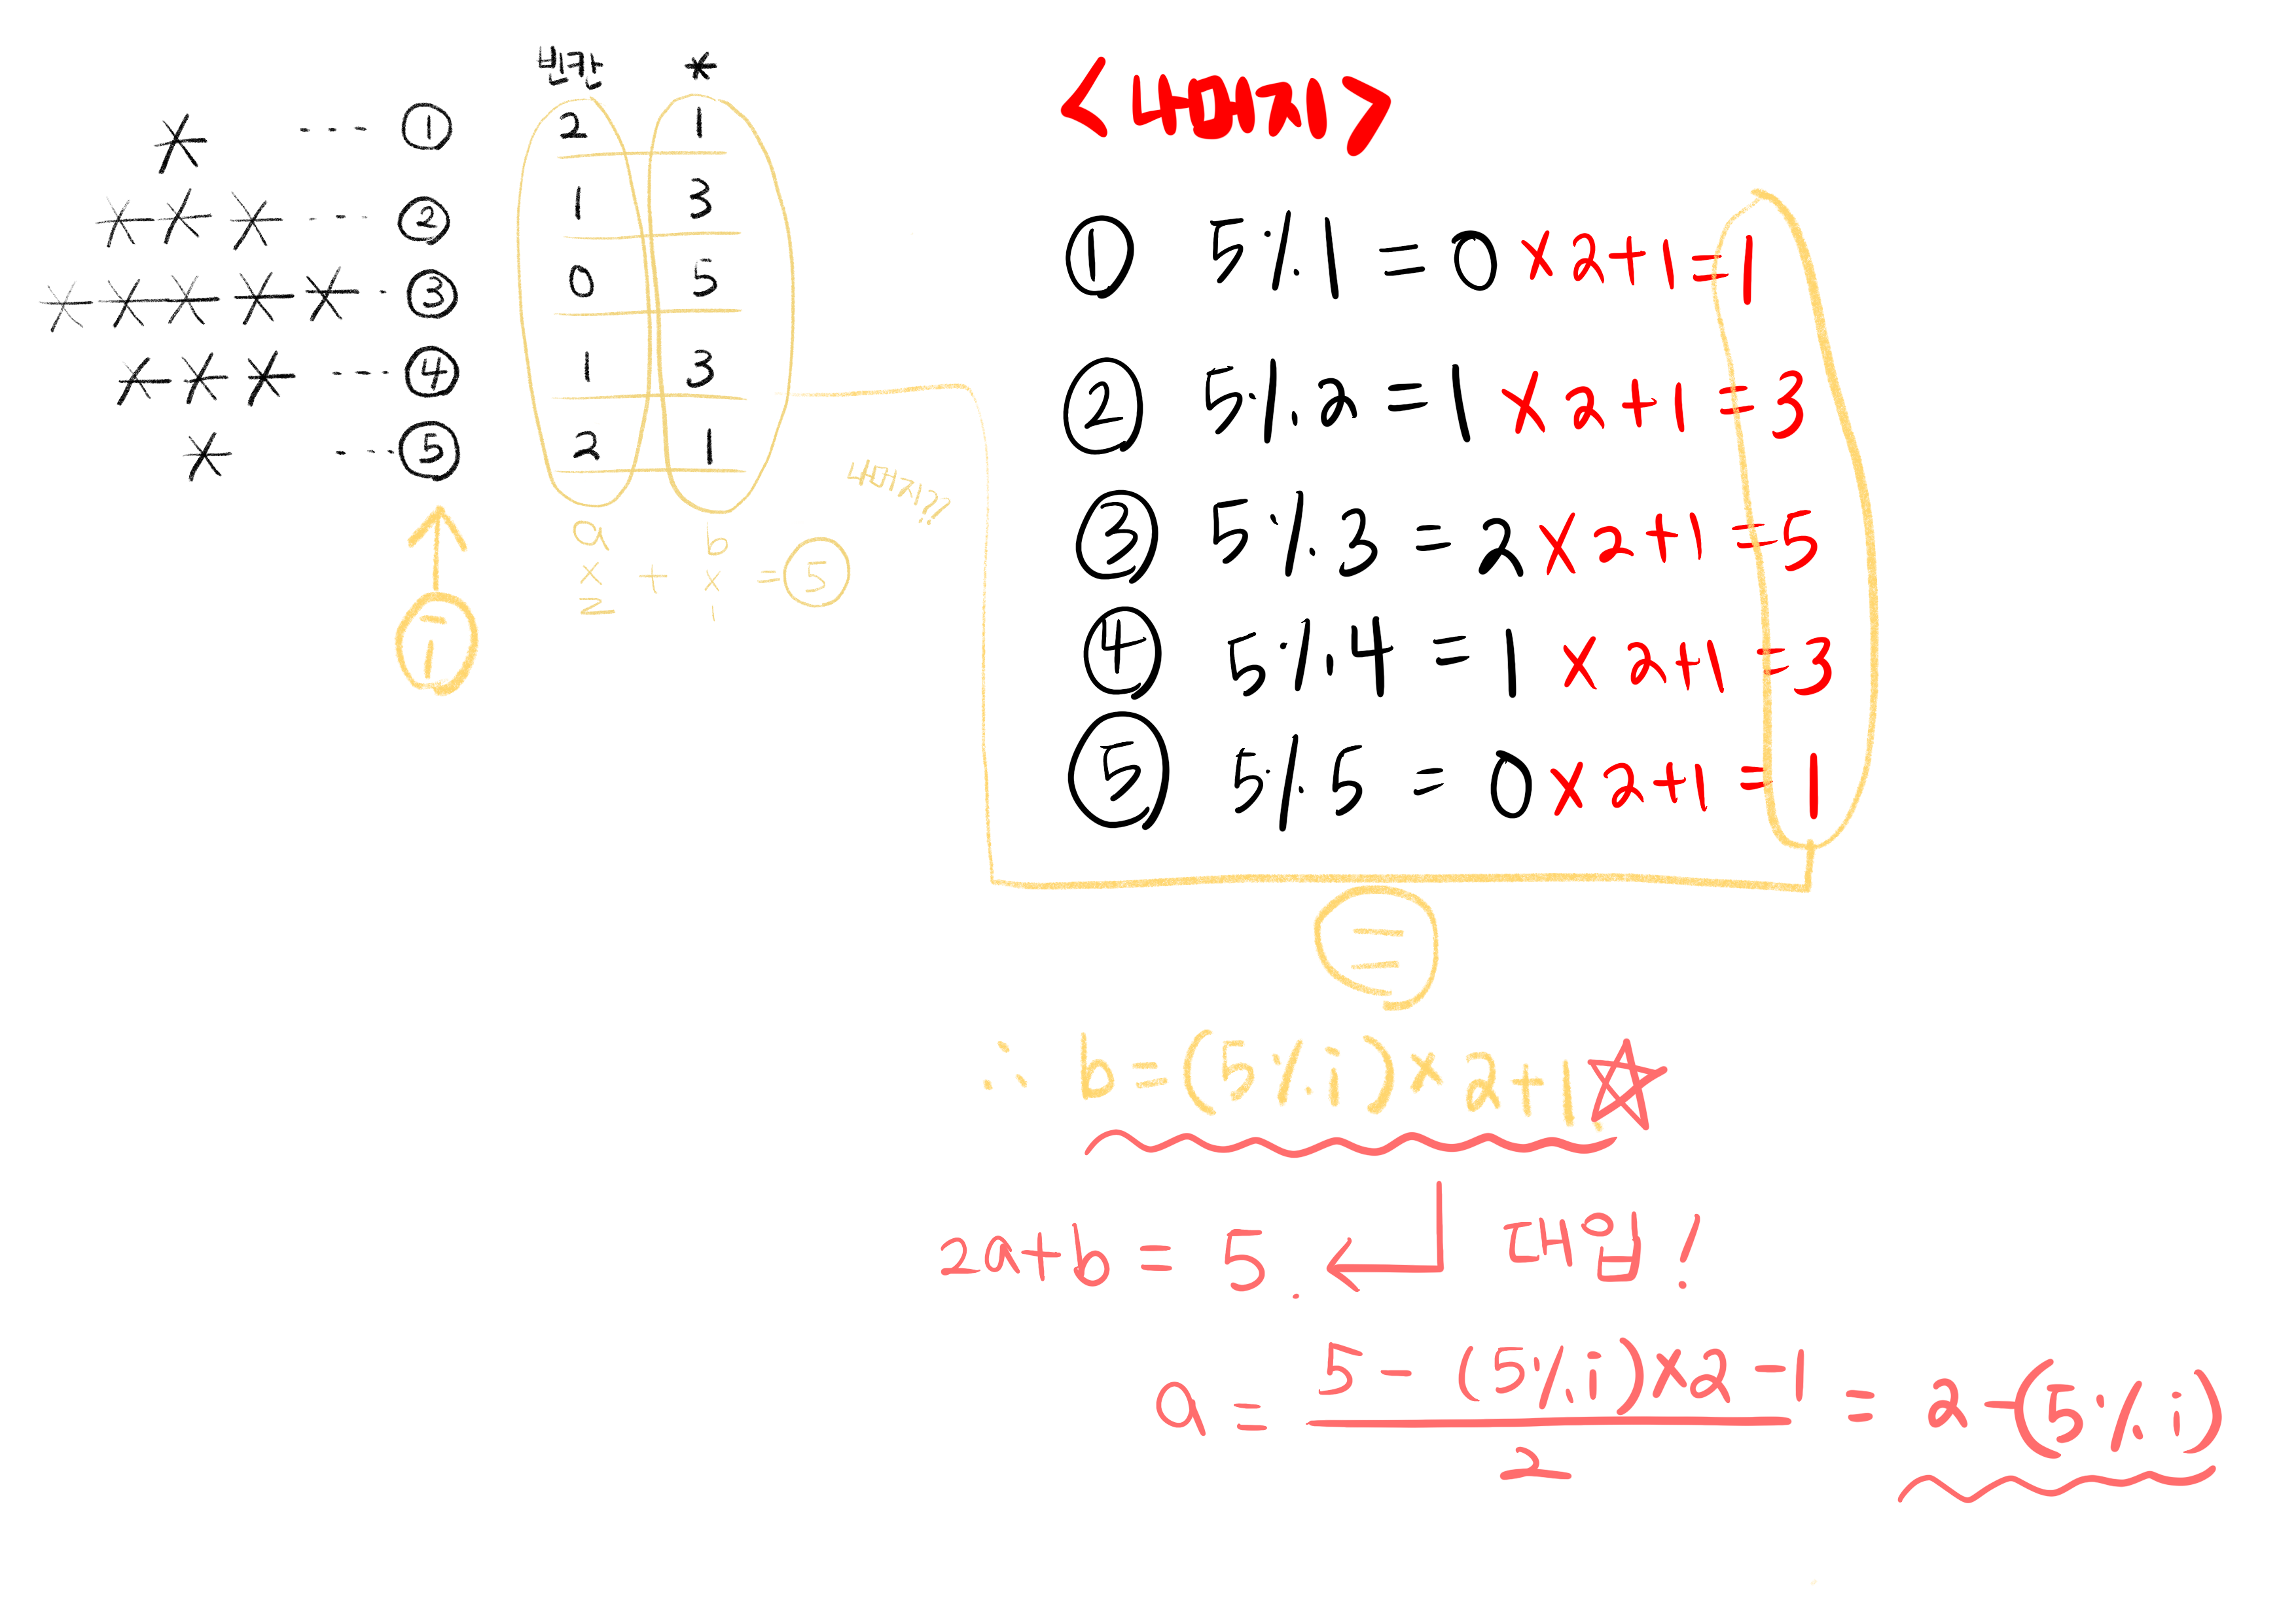 빈칸 *
* --- ① 2 1
*** --- ② 1 3
***** - ③ 0 5
*** --- ④ 1 3
* --- ⑤ 2 1
i
a b
x + x = 5
2 1
나머지??
<나머지>
① 5%1 = 0 x 2+1 = 1
② 5%2 = 1 x 2+1 = 3
③ 5%3 = 2 x 2+1 = 5
④ 5%4 = 1 x 2+1 = 3
⑤ 5%5 = 0 x 2+1 = 1
=
∴ b = (5%i) x 2+1 ☆
2a+b = 5. ← 대입!
a = 5 - (5%i) x 2 - 1 / 2 = 2 - (5%i)